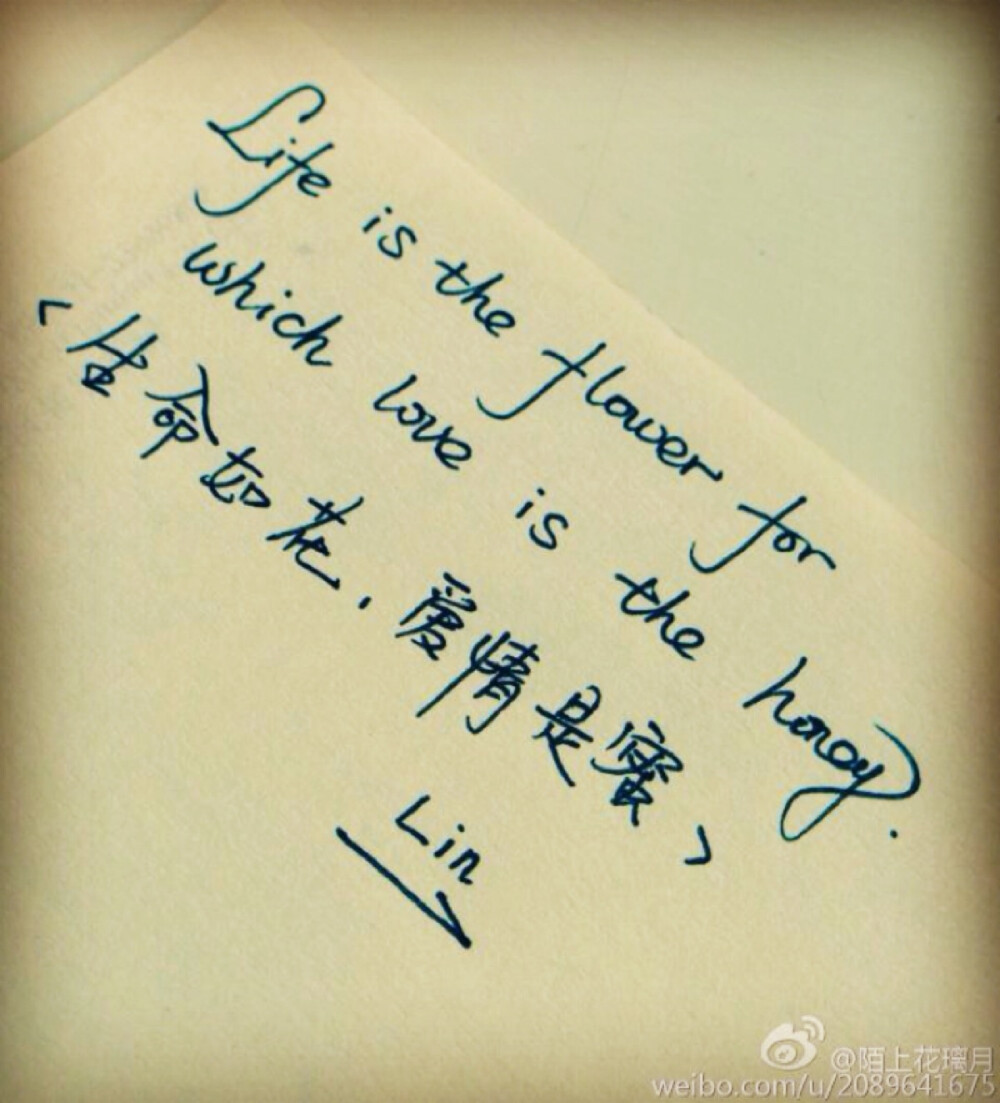 Life is the flower for
which love is the honey.
<生命如花,爱情是蜜>
Lin
@陌上花璃月
weibo.com/u/2089641675